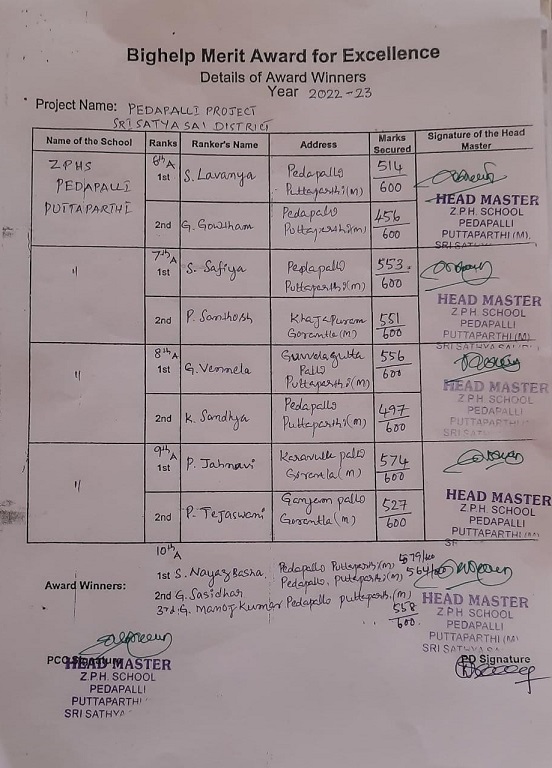 Bighelp Merit Award for Excellence
Details of Award Winners
Year 2022-23
Project Name: PEDAPALLI PROJECT
SRI SATYA SAI DISTRICT
Name of the School Ranks Ranker's Name Address Marks Secured Signature of the Head Master
ZPHS PEDAPALLI PUTTAPARTHI 6th A 1st S. Lavanya Pedapalli Puttaparthi(m) 514/600
HEAD MASTER
Z.P.H. SCHOOL
PEDAPALLI
PUTTAPARTHI (M),
SRI SATHYA
2nd G. Gowtham Pedapalli Puttaparthi(m) 456/600
" 7th A 1st S. Safiya Pedapalli Puttaparthi(m) 553/600
HEAD MASTER
Z.P.H. SCHOOL
PEDAPALLI
PUTTAPARTHI (M)
SRI SATHYA SAI
2nd P. Santhosh Khajapuram Gorantla(m) 551/600
" 8th A 1st G. Vennela Guvvalagutta Palli Puttaparthi(m) 556/600
HEAD MASTER
Z.P.H. SCHOOL
PEDAPALLI
PUTTAPARTHI (M)
SRI SATH
2nd K. Sandhya Pedapalli Puttaparthi(m) 497/600
" 9th A 1st P. Jahnavi palli Gorantla(m) 574/600
HEAD MASTER
Z.P.H. SCHOOL
PEDAPALLI
PUTTAPARTHI (M)
2nd P. Tejaswani palli Gorantla(m) 527/600
10th A
Award Winners:
1st S. Nayaz Basha Pedapalli Puttaparthi(m) 579/600
2nd G. Sasidhar Pedapalli, puttaparthi(m) 564/600
3rd G. Manoj Kumar Pedapalli puttaparthi(m) 558/600
HEAD MASTER
Z.P.H. SCHOOL
PEDAPALLI
PUTTAPARTHI (M)
SRI SATHYA
PCO Signature
HEAD MASTER
Z.P.H. SCHOOL
PEDAPALLI
PUTTAPARTHI
SRI SATHYA
PD Signature